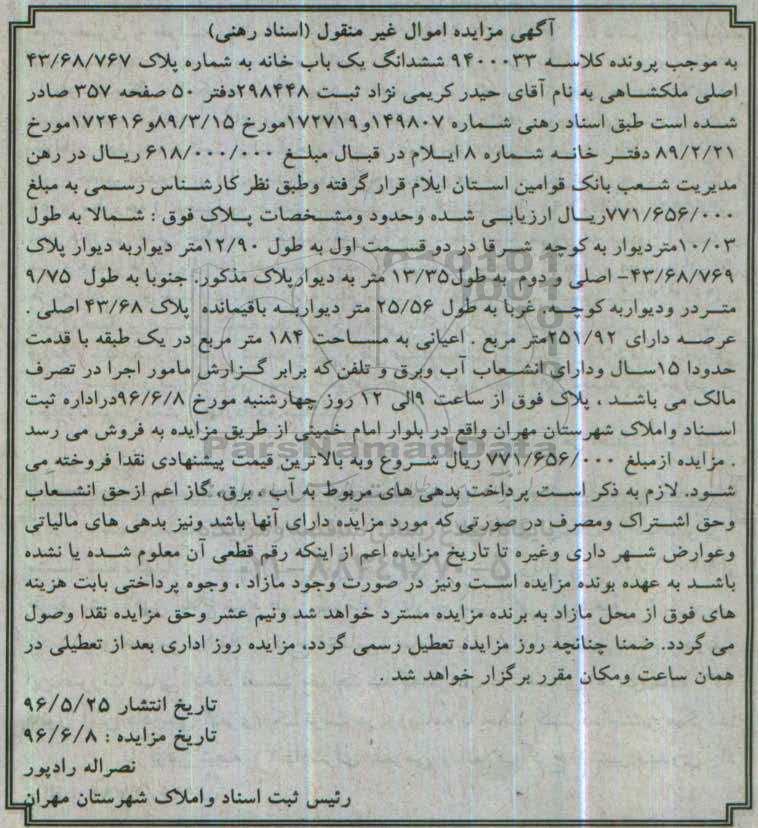 آگهی مزایده اموال غیر منقول (اسناد رهنی)
به موجب پرونده کلاسه ۹۴۰۰۰۳۳ ششدانگ یک باب خانه به شماره پلاک ۴۳/۶۸/۷۶۷
اصلی ملکشاهی به نام آقای حیدر کریمی نژاد ثبت ۲۹۸۴۴۸دفتر ۵۰ صفحه ۳۵۷ صادر
شده است طبق اسناد رهنی شماره ۱۴۹۸۰۷و۱۷۲۷۱۹مورخ ۸۹/۳/۱۵و۱۷۲۴۱۶مورخ
۸۹/۲/۲۱ دفتر خانه شماره ۸ایلام در قبال مبلغ ۶۱۸/۰۰۰/۰۰۰ ریال در رهن
مدیریت شعب بانک قوامین استان ایلام قرار گرفته وطبق نظر کارشناس رسمی به مبلغ
۷۷۱/۶۵۶/۰۰۰ریال ارزیابی شده وحدود ومشخصات پلاک فوق : شمالا به طول
۱۰/۰۳متردیوار به کوچه شرقا در دو قسمت اول به طول ۱۲/۹۰متر دیواربه دیوار پلاک
۴۳/۶۸/۷۶۹– اصلی و دوم به طول۱۳/۳۵ متر به دیوارپلاک مذکور. جنوبا به طول ۹/۷۵
متر در ودیواربه کوچه، غربا به طول ۲۵/۵۶ متر دیواربه باقیمانده پلاک ۴۳/۶۸ اصلی .
عرصه دارای ۲۵۱/۹۲متر مربع . اعیانی به مساحت ۱۸۴ متر مربع در یک طبقه با قدمت
حدودا ۱۵سال ودارای انشعاب آب وبرق و تلفن که برابر گزارش مامور اجرا در تصرف
مالک می باشد ، پلاک فوق از ساعت ۹الی ۱۲ روز چهارشنبه مورخ ۹۶/۶/۸دراداره ثبت
اسناد واملاک شهرستان مهران واقع در بلوار امام خمینی از طریق مزایده به فروش می رسد
. مزایده ازمبلغ ۷۷۱/۶۵۶/۰۰۰ ریال شروع وبه بالاترین قیمت پیشنهادی نقدا فروخته می
شود. لازم به ذکر است پرداخت بدهی های مربوط به آب ، برق، گاز اعم ازحق انشعاب
وحق اشتراک ومصرف در صورتی که مورد مزایده دارای آنها باشد ونیز بدهی های مالیاتی
وعوارض شهر داری وغیره تا تاریخ مزایده اعم از اینکه رقم قطعی آن معلوم شده یا نشده
باشد به عهده بونده مزایده است ونیز در صورت وجود مازاد ، وجوه پرداختی بابت هزینه
های فوق از محل مازاد به برنده مزایده مسترد خواهد شد ونیم عشر وحق مزایده نقدا وصول
می گردد. ضمنا چنانچه روز مزایده تعطیل رسمی گردد، مزایده روز اداری بعد از تعطیلی در
همان ساعت ومکان مقرر برگزار خواهد شد .
تاریخ انتشار ۹۶/۵/۲۵
تاریخ مزایده : ۹۶/۶/۸
نصراله رادپور
رئیس ثبت اسناد واملاک شهرستان مهران
ParsNamadData